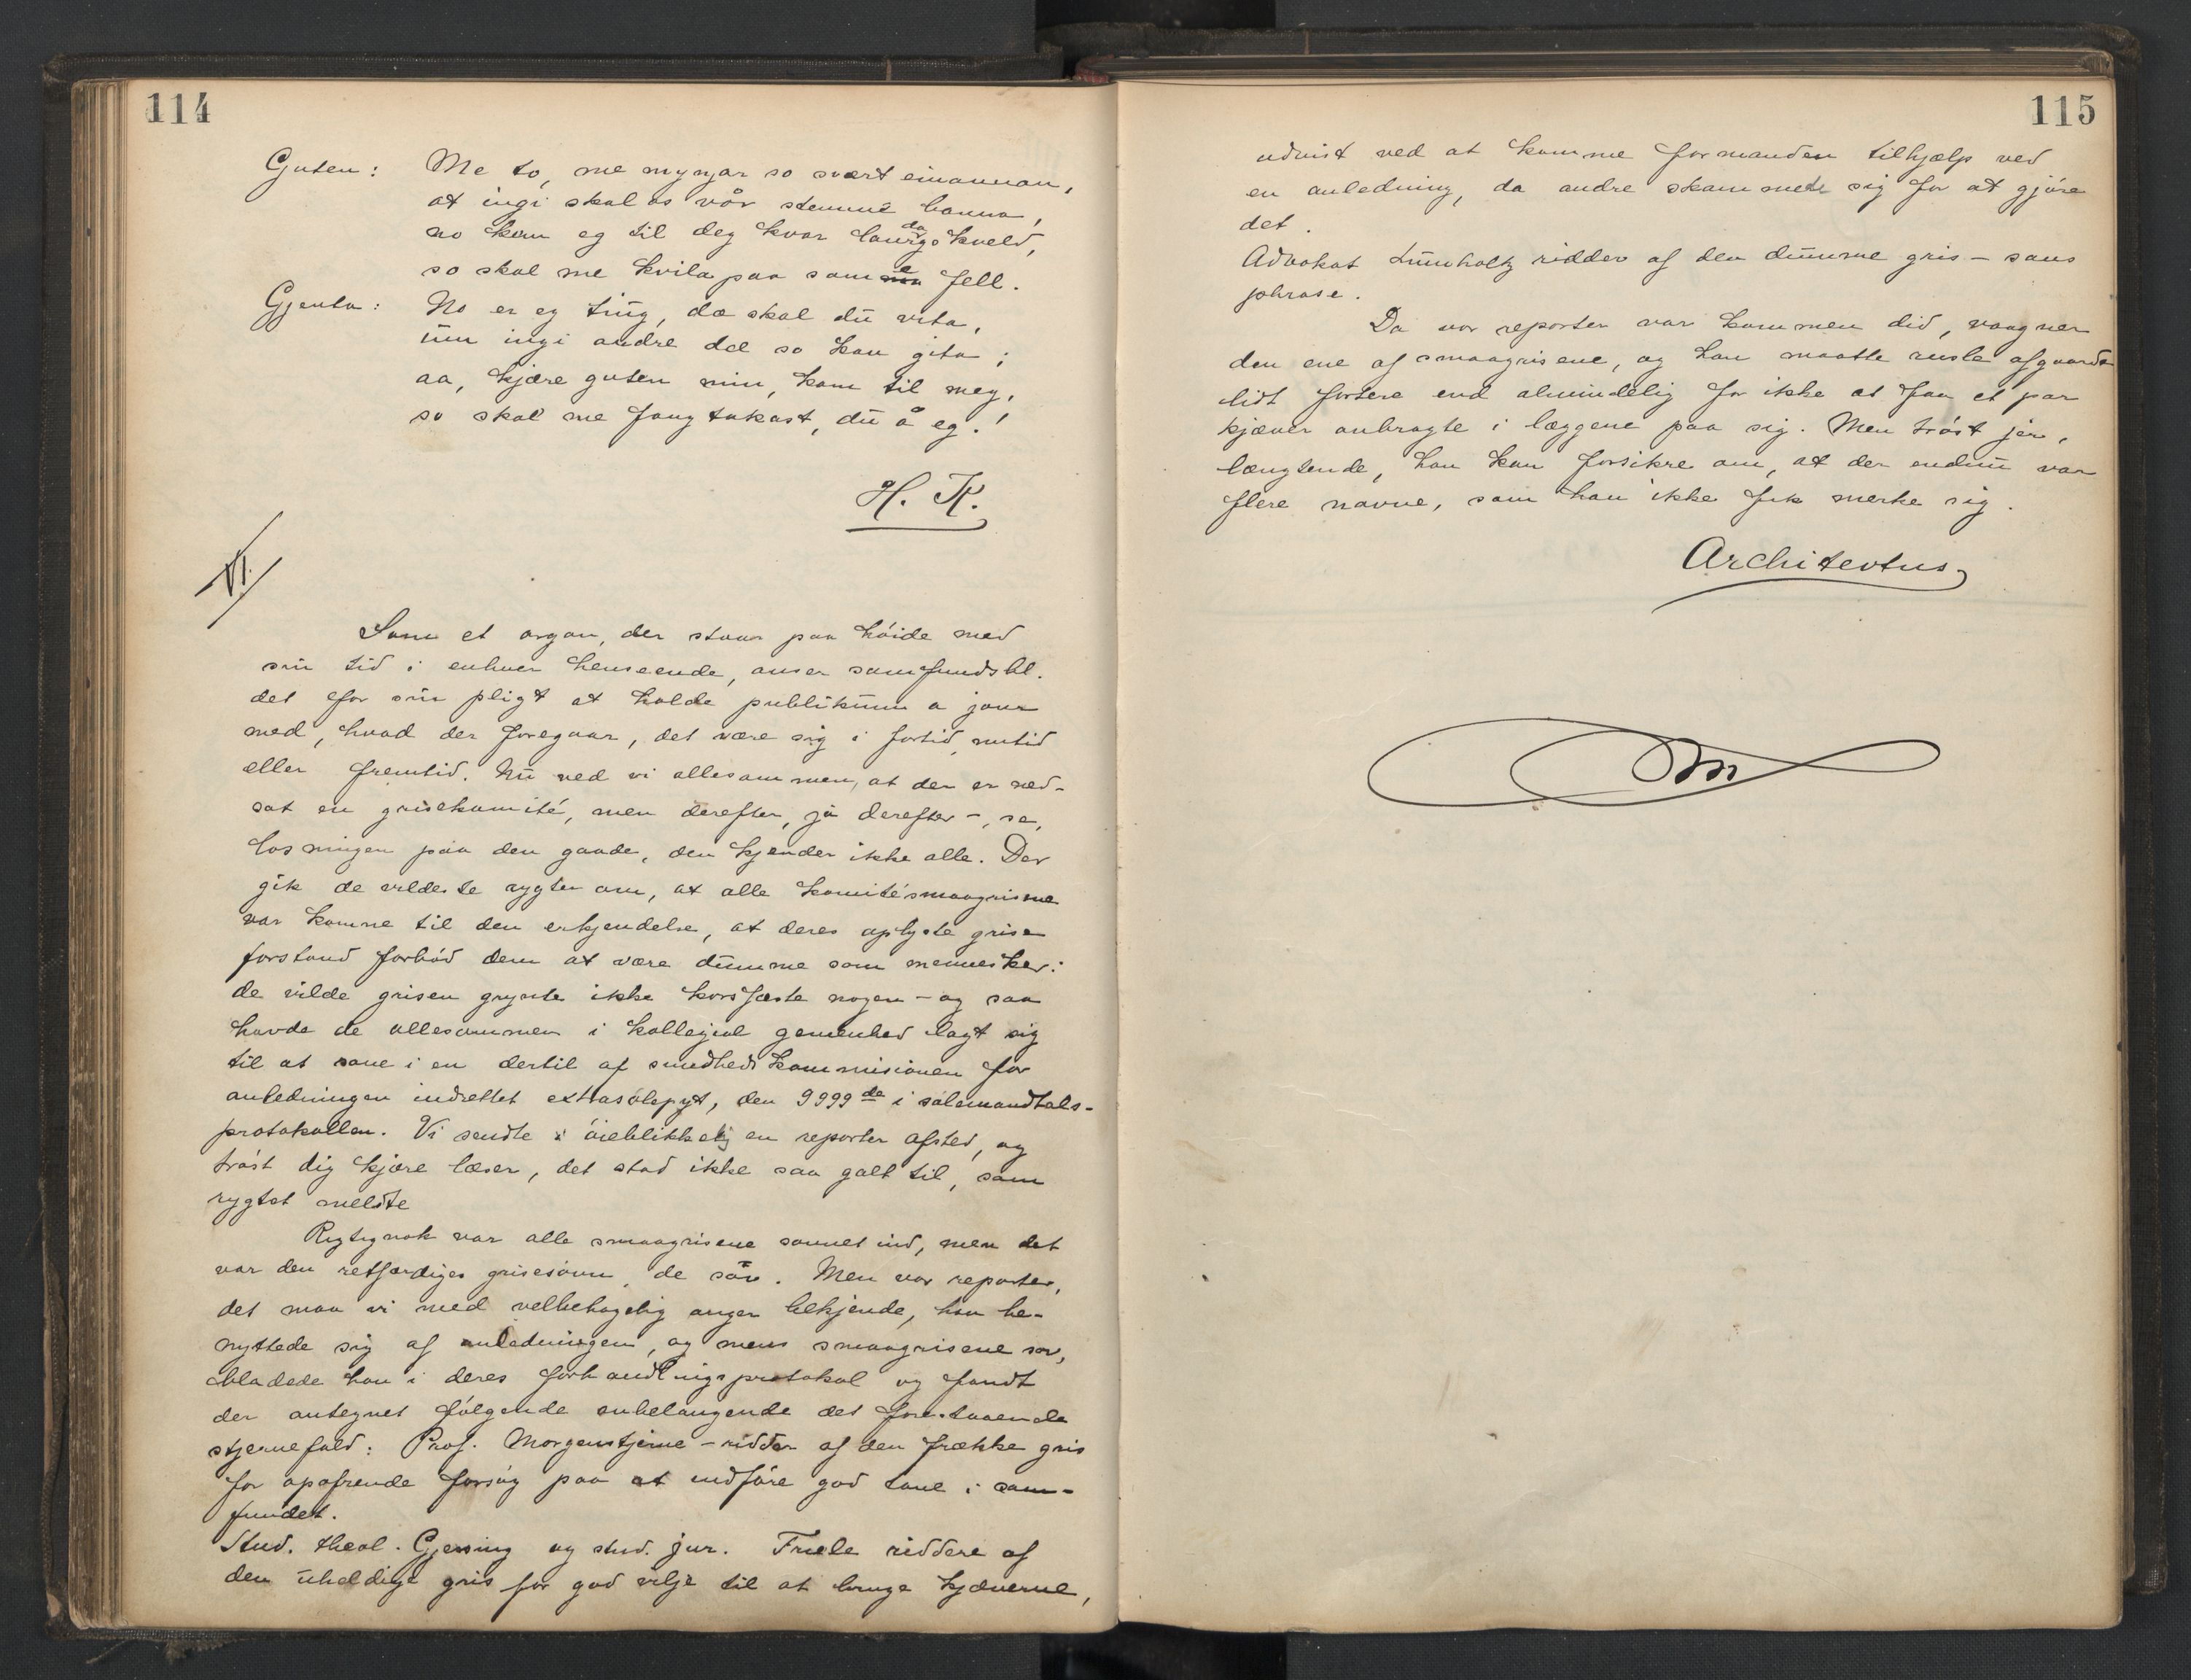 114
Guten: Me to, me mynjar so svært einannan,
at ingi skal os vår stemne banna,
no kem eg til deg kvar laurdagskveld,
so skal me kvila paa same fell.
Gjenta: No er eg tung, da skal du vita,
um ingi andre dæ so kan gita;
aa, kjære guten min, kom til meg,
so skal me fangtakast, du å eg.!
H. K.
VI.
Som et organ, der staar paa høide med
sin tid i enhver henseende, anser samfundsbl.
det for sin pligt at holde publikum a jour
med, hvad der foregaar, det være sig i fortid, nutid
eller fremtid. Nu ved vi allesammen, at der er ned-
sat en grisekomité, men derefter, ja derefter –, se,
løsningen paa den gaade, den kjender ikke alle. Der
gik de vildeste rygter om, at alle komitésmaagrisene
var komne til den erkjendelse, at deres oplyste grise
forstand forbød dem at være dumme som mennesker:
de vilde grisen grynte ikke korsfæste nogen – og saa
havde de allesammen i kollegial gemenhed lagt sig
til at sove i en dertil af sundhedskommisionen for
anledningen indrettet extrasølepyt, den 9999de i sølemandtals-
protokollen. Vi sendte øieblikkelig en reporter afsted, og
trøst dig kjære læser, det stod ikke saa galt til, som
rygtet meldte
Rigtignok var alle smaagrisene sovnet ind, men det
var den retfærdiges grisesøvn, de sov. Men vor reporter,
det maa vi med velbehagelig anger bekjende, han be-
nyttede sig af anledningen, og mens smaagrisene sov,
bladede han i deres forhandlingsprotokol og fandt
der antegnet følgende anbelangende det forestaaende
stjernefald: Prof. Morgenstjerne – ridder af den frække gris
for opofrende forsøg paa at indføre god tone i sam-
fundet.
Stud. theol. Gjessing og stud. jur. Friele riddere af
den uheldige gris for god vilje til at bruge kjæverne,
115
udvist ved at komme formanden tilhjælp ved
en anledning, da andre skammede sig for at gjøre
det.
Advokat Lumholtz ridder af den dumme gris – sans
phrase.
Da vor reporter var kommen did, vaagner
den ene af smaagrisene, og han maatte rusle afgaarde
lidt fortere end almindelig for ikke at faa et par
kjæver anbragte i læggene paa sig. Men trøst jer,
længtende, han kan forsikre om, at der endnu var
flere navne, som han ikke fik merke sig.
Architectus